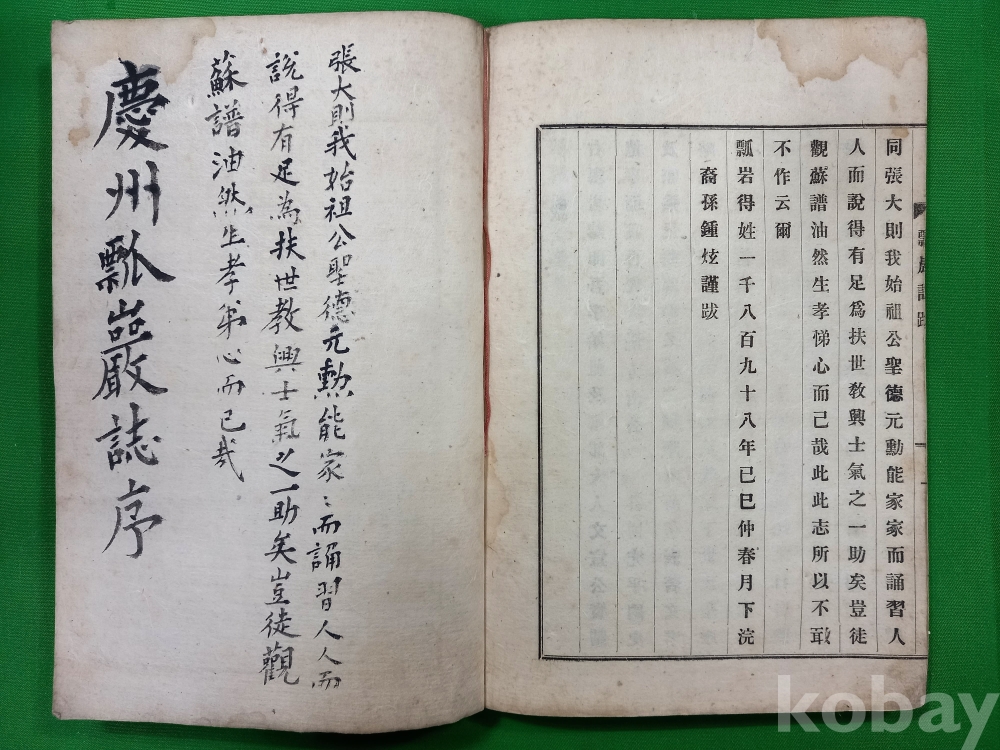 同張大則我始祖公聖德元勳能家家而誦習人
人而說得有足爲扶世敎興士氣之一助矣豈徒
觀蘇譜油然生孝悌心而已哉此此志所以不敢
不作云爾
瓢岩得姓一千八百九十八年已巳仲春月下浣
裔孫鍾炫謹跋
張大則我始祖公聖德元勲能家〻而誦習人人而
說得有足為扶世教興士氣之一助矣豈徒觀
蘇譜油然生孝弟心而已哉
慶州瓢巖誌序
kobay